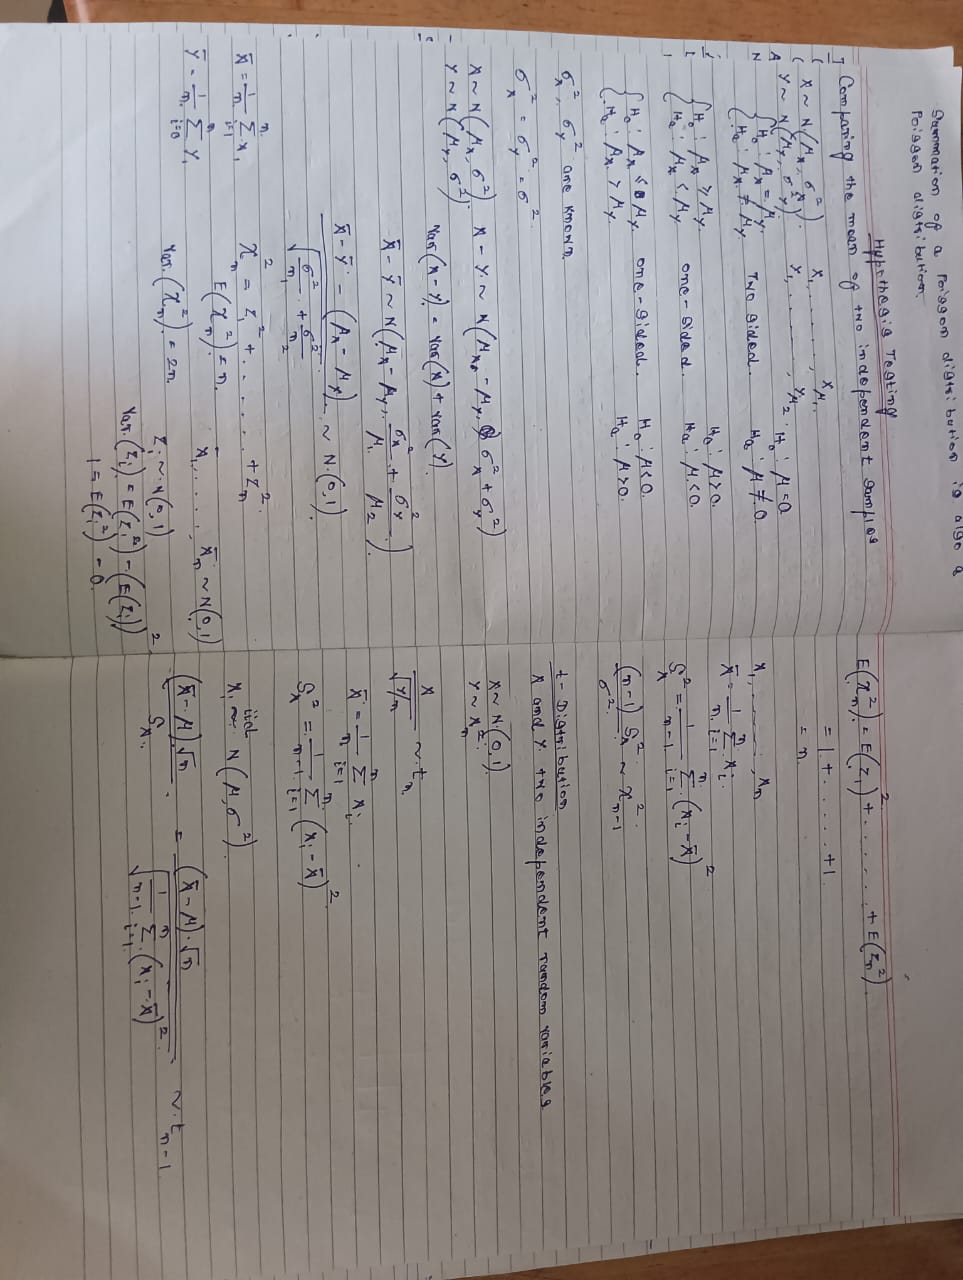 Summation of a Poisson distribution is also a
Poisson distribution.
Hypothesis Testing
Comparing the mean of two independent samples
X ~ N(μ_x, σ_x^2). X_1, ......, X_{μ_1}
Y ~ N(μ_Y, σ_Y^2). Y_1, ......, Y_{μ_2}
{H_0 : μ_x = μ_Y. H_0 : μ = 0
{H_a : μ_x ≠ μ_Y Two sided. H_a : μ ≠ 0.
{H_0 : μ_x ≥ μ_Y. H_0 : μ > 0.
{H_a : μ_x < μ_Y one-sided. H_a : μ < 0.
{H_0 : μ_x ≤ μ_Y one-sided. H_0 : μ < 0.
{H_a : μ_x > μ_Y. H_a : μ > 0.
σ_x^2, σ_Y^2 are known.
σ_x^2 = σ_Y^2 = σ^2
X ~ N(μ_x, σ^2). X - Y ~ N(μ_x - μ_Y, σ_x^2 + σ_Y^2)
Y ~ N(μ_Y, σ^2)
Var(X - Y) = Var(X) + Var(Y).
X̄ - Ȳ ~ N(μ_x - μ_Y, σ_x^2/μ_1 + σ_Y^2/μ_2).
(X̄ - Ȳ - (μ_x - μ_Y)) / √(σ^2/n_1 + σ^2/n_2) ~ N(0,1).
X̄ = 1/n Σ_{i=1}^{n} X_i χ_n^2 = Z_1^2 + ....... + Z_n^2
E(χ_n^2) = n.
Ȳ = 1/n Σ_{i=0}^{n} Y_i X̄_1, ....., X̄_n ~ N(0,1)
Var.(χ_n^2) = 2n.
Z_i ~ N(0,1)
Var.(Z_i) = E(Z_i^2) - (E(Z_i))^2
1 = E(Z_i^2) - 0.
E(χ_n^2) = E(Z_1)^2 + ........ + E(Z_n^2)
= 1 + ...... + 1
= n.
X_1, ......., X_n
X̄ = 1/n Σ_{i=1}^{n} X_i.
S_x^2 = 1/(n-1) Σ_{i=1}^{n} (X_i - X̄)^2
(n-1) S_x^2 / σ^2 ~ χ_{n-1}^2
t - Distribution
X and Y. two independent random variables
X ~ N(0,1).
Y ~ χ_n^2.
X / √(Y/n) ~ t_n
X̄ = 1/n Σ_{i=1} X_i.
S_x^2 = 1/(n-1) Σ_{i=1}^{n} (X_i - X̄)^2
X_i iid ~ N(μ, σ^2).
(X̄ - μ).√n / S_x. = (X̄ - μ).√n / √(1/(n-1) Σ_{i=1}^{n} (X_i - X̄)^2) ~ t_{n-1}